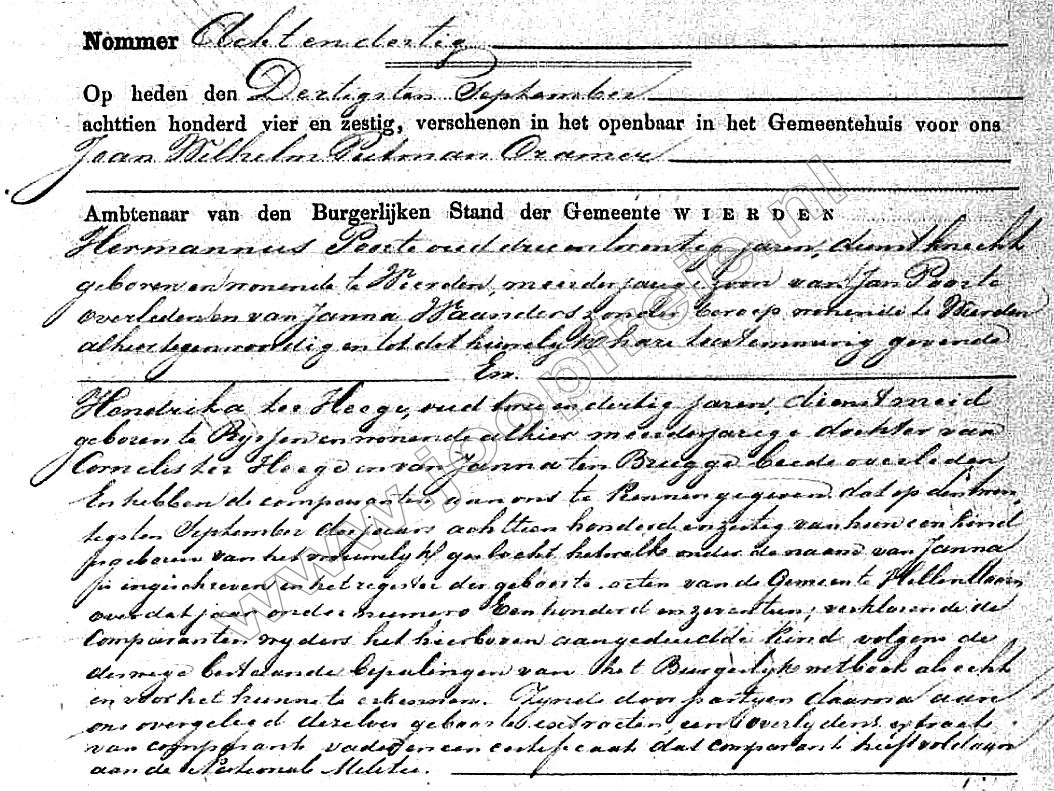 Nommer Acht en dertig
Op heden den Dertigsten September
achttien honderd vier en zestig, verschenen in het openbaar in het Gemeentehuis voor ons
Jean Wilhelm Putman Cramer
Ambtenaar van den Burgerlijken Stand der Gemeente WIERDEN
Hermannus Poorte oud drie en twintig jaren, dienstknecht
geboren en wonende te Wierden, meerderjarige zoon van Jan Poorte
overleden en van Janna Waanders zonder beroep wonende te Wierden
alhier tegenwoordig en tot dit huwelijk hare toestemming gevende
En
Hendrika ter Hoege, oud twee en dertig jaren, dienstmeid
geboren te Ryssen en wonende alhier meerderjarige dochter van
Cornelis ter Hoege en van Janna ten Brugge beide overleden
En hebben de comparanten aan ons te kennen gegeven dat op den twin
tigsten September des jaars achttien honderd en zestig van hen een kind
is geboren van het vrouwelyk geslacht hetwelk onder de naam van Janna
is ingeschreven in het register der geboorte acten van de Gemeente Hellendoorn
over dat jaar onder numero Een honderd en zeventien; verklarende de
Comparanten wyders het hierboven aangeduidde kind volgens de
deswege bestaande bepalingen van het Burgerlyk wetboek als echt
en voor het hunne te erkennen. Zynde door partyen daarna aan
ons overgelegd derzelver geboorte extracten, een overlydens extract
van comparants vader en een certificaat dat comparant heeft voldaan
aan de Nationale Militie.
www.joopfreie.nl